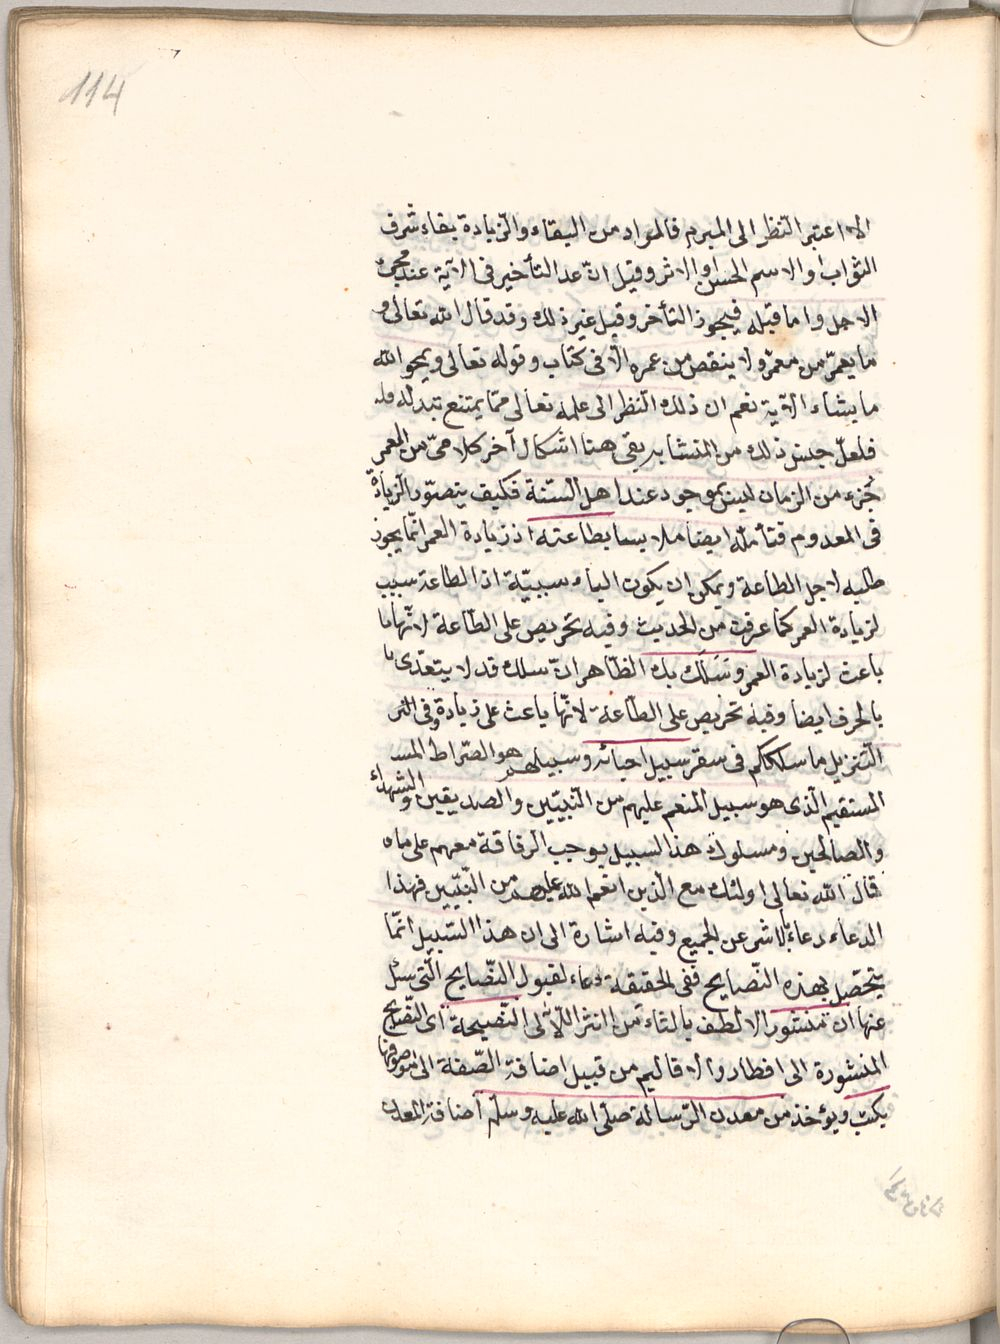 114
الا اعتبر النّظر الى المبرم فالمراد من البقاء والزّيادة بقاء شرف
الثواب والاسم الحسن والاثر وقيل انّ عد التأخير فى الآية عند مجئ
الاجل واما قبله فيجوز التأخر وقيل غير ذلك وقد قال الله تعالى و
ما يعمّر من معمّر ولا ينقص من عمره الّا فى كتاب وقوله تعالى ويمحو الله
ما يشاء الآية نعم ان ذلك النّظر الى علمه تعالى ممّا يمتنع تبدله
فلعلّ جنس ذلك من المتشابه بقى هنا اشكال آخر كلامىّ من العمر
جزء من الزمان ليس بموجود عند اهل السّنة فكيف يتصوّر الزّيادة
فى المعدوم فتأمّله ايضا ملابسا بطاعته اذ زيادة العمر انّما يجوز
طلبه لاجل الطاعة ويمكن ان يكون الباء سببيّة اذ الطاعة سبب
لزيادة العمر كما عرفت من الحديث وفيه تحريص على الطّاعة لانّها ما
باعث لزيادة العمر وسَلَك بك الظّاهر انّ سلك قد لا يتعدّى
بالحرف ايضا وفيه تحريص على الطّاعة لانّها باعث على زيادة وفى
التنزيل ما سلككم فى سقر سبيل احبائه وسبيلهم هو الصّراط المسـ
المستقيم الّذى هو سبيل المنعم عليهم من النّبيّين والصديقين والشهداء
والصالحين ومسلوك هذا السبيل يوجب الرفاقة معهم على ما
قال الله تعالى اولئك مع الذين انعم الله عليهم من النّبيّين فهذا
الدعاء دعاء ناشر عن الجميع وفيه اشارة الى ان هذا السّبيل انّما
يتحصّل بهذه النّصايح ففى الحقيقة دعاء لقبول النّصايح الّتى سئل
عنها ان منشور الالطف بالتاء من انثر اللّآلى النّصيحة اى النّصايح
المنشورة الى اقطار والاقاليم من قبيل اضافة الصّفة الى موصوفها
يكتب ويؤخذ من معدن الرّسالة صلّى الله عليه وسلّم اضافة المعدن